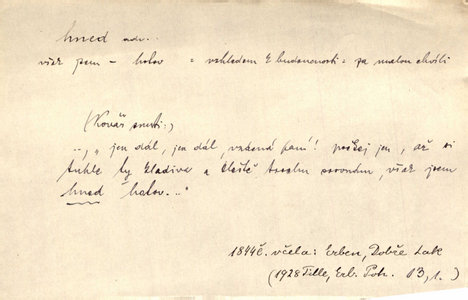 hned adv..
však jsem – hotov = vzhledem k budoucnosti = za malou chvíli
(Kovář smrti:)
..„ jen dál, jen dál, vzácná paní! počkej jen, až si
tuhle ty kladiva a kleště trochu srovnám, však jsem
hned hotov..."
1844 č. včela: Erben, Dobře tak
(1928 Tille, Erb. Poh. 13, 1.)